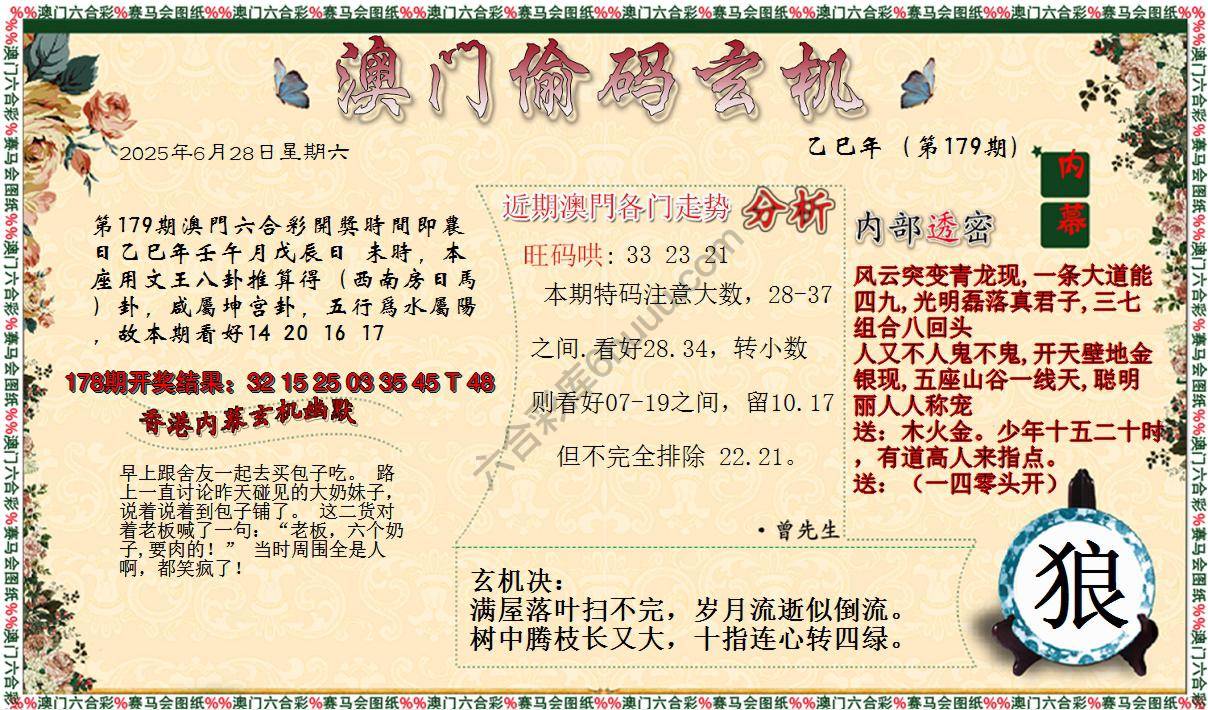 %%澳门六合彩%赛马会图纸%%澳门六合彩%赛马会图纸%%澳门六合彩%赛马会图纸%%澳门六合彩%赛马会图纸%%澳门六合彩%赛马会图纸%%澳门六合彩%赛马会图纸%%澳门六合彩%赛马会图纸
澳门偷码玄机
2025年6月28日星期六
乙巳年（第179期）
内幕
第179期澳門六合彩開獎時間即農
日乙巳年壬午月戊辰日 未時，本
座用文王八卦推算得（西南房日馬
）卦，咸屬坤宫卦，五行爲水屬陽
，故本期看好14 20 16 17
178期开奖结果：32 15 25 03 35 45 T 48
香港内幕玄机幽默
早上跟舍友一起去买包子吃。 路
上一直讨论昨天碰见的大奶妹子，
说着说着到包子铺了。 这二货对
着老板喊了一句：“老板，六个奶
子,要肉的！” 当时周围全是人
啊，都笑疯了！
近期澳門各门走势 分析
旺码哄: 33 23 21
本期特码注意大数，28-37
之间.看好28.34，转小数
则看好07-19之间，留10.17
但不完全排除 22.21。
·曾先生
内部透密
风云突变青龙现,一条大道能
四九,光明磊落真君子,三七
组合八回头
人又不人鬼不鬼,开天壁地金
银现,五座山谷一线天,聪明
丽人人称宠
送：木火金。少年十五二十时
，有道高人来指点。
送：（一四零头开）
玄机决：
满屋落叶扫不完，岁月流逝似倒流。
树中腾枝长又大，十指连心转四绿。
狼
%%澳门六合彩%赛马会图纸%%澳门六合彩%赛马会图纸%%澳门六合彩%赛马会图纸%%澳门六合彩%赛马会图纸%%澳门六合彩%赛马会图纸%%澳门六合彩%赛马会图纸%%澳门六合彩%赛马会图纸